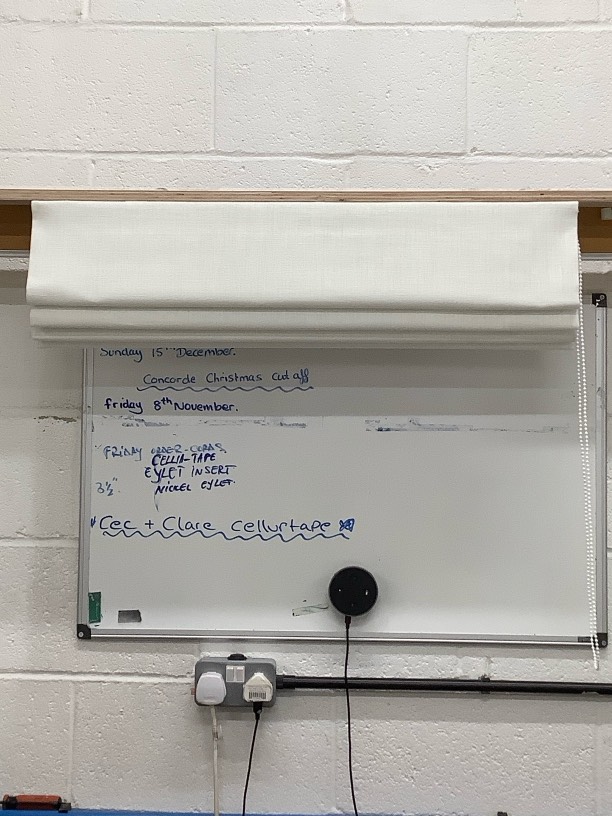 Sunday 15th December.
Concorde Christmas cut off
friday 8th November.
"FRIDAY ORDER-CORDS
CELLIA-TAPE
EYLET INSERT
3½". NICKEL EYLET.
Cec + Clare Cellurtape